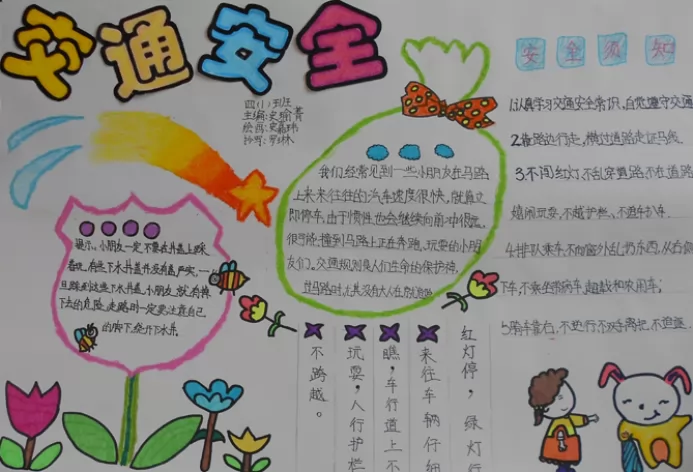 交通安全
四(1)班
主编:史瑜菁
安全须知
1.认真学习交通安全常识,自觉遵守交通
2.靠路边行走,横过道路走斑马线。
3.不闯红灯,不乱穿道路,不在道路
嬉闹玩耍,不越护栏、不追车扒车。
4.排队乘车,不向窗外乱扔东西,从右侧
下车,不乘坐带病车、超载和农用车;
5.骑车靠右,不逆行,不双手离把,不追逐
我们经常见到一些小朋友在马路
上来来往往的汽车速度很快,就算立
即停车,由于惯性也会继续向前冲很远,
很可能撞到马路上正在奔跑、玩耍的小朋
友们。交通规则是人们生命的保护神,
过马路时,尤其没有大人在旁
提示:小朋友一定不要在井盖上踩
一
旦踩到这些下水井盖,小朋友就有掉
下去的危险,走路时一定要注意自己
的脚下,绕开下水井。
红灯停,绿灯行
来往车辆仔细
瞧,车行道上不
玩耍,人行护栏
不跨越。